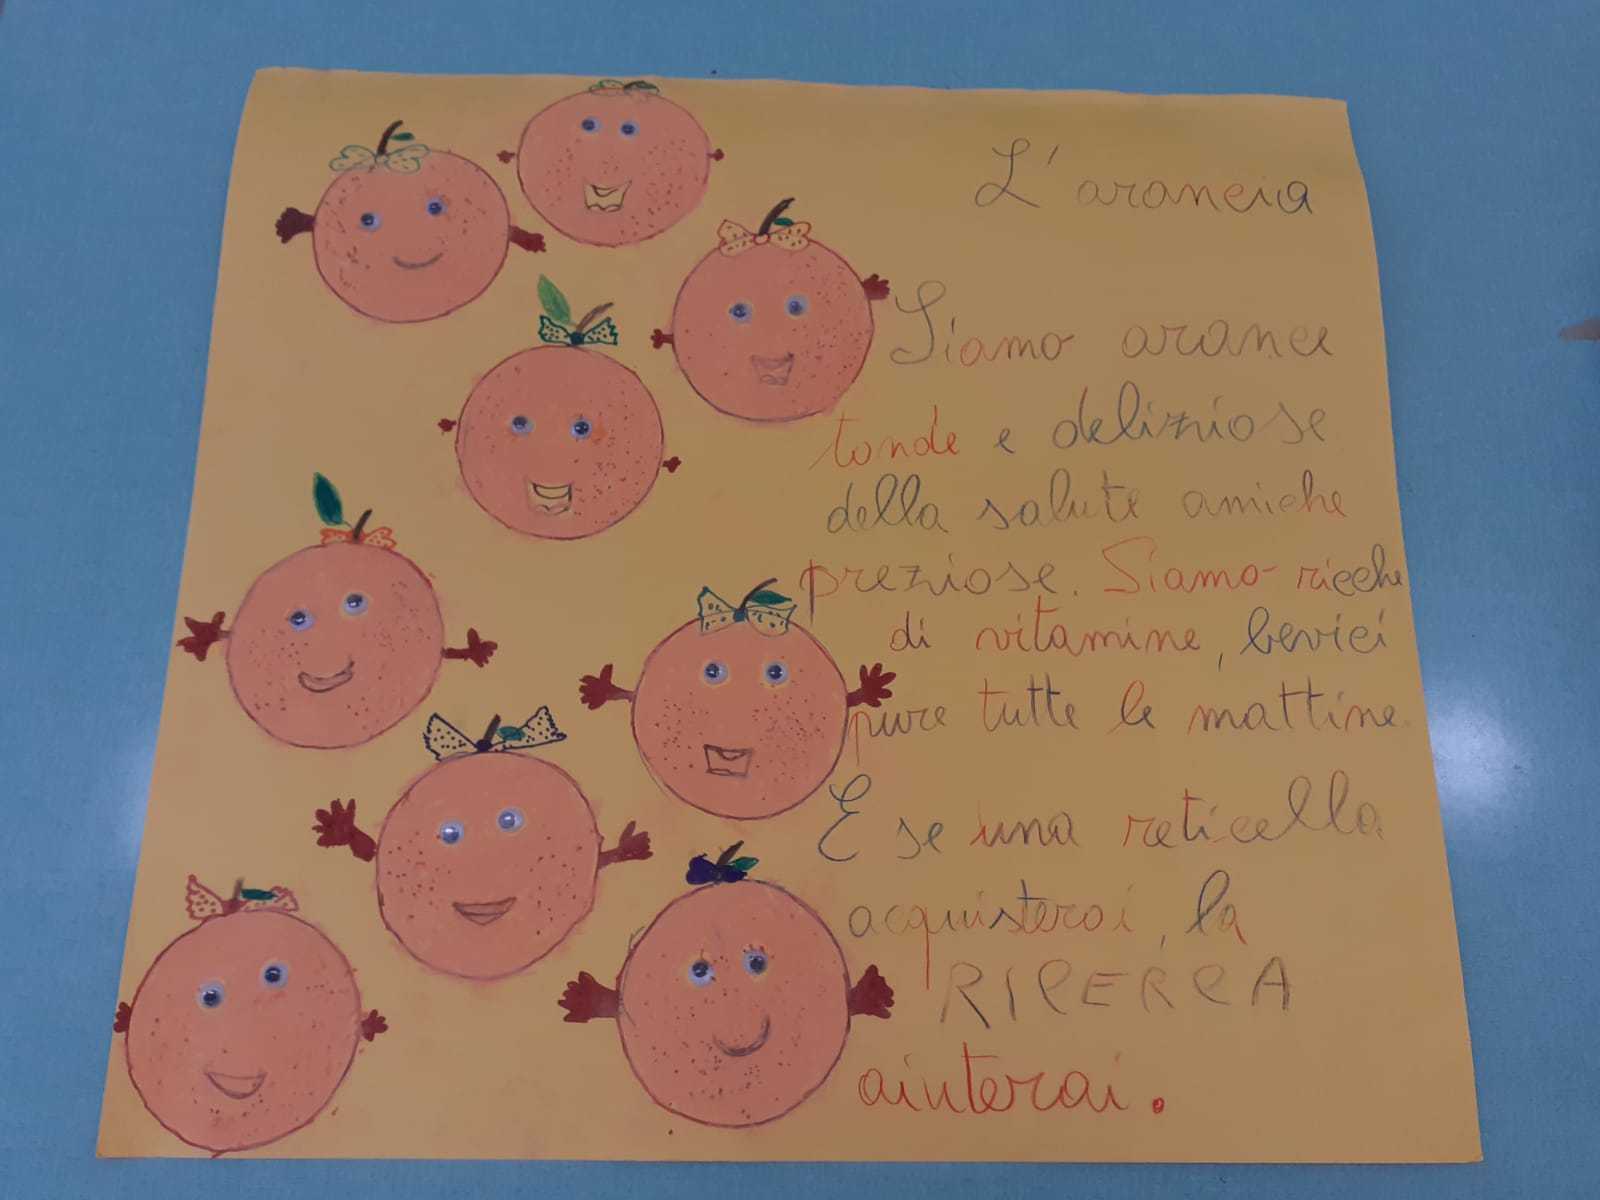 L'arancia
Siamo arance
tonde e deliziose
della salute amiche
preziose. Siamo ricche
di vitamine, bevici
pure tutte le mattine.
E se una reticella
acquisterai, la
RICERCA
aiuterai.